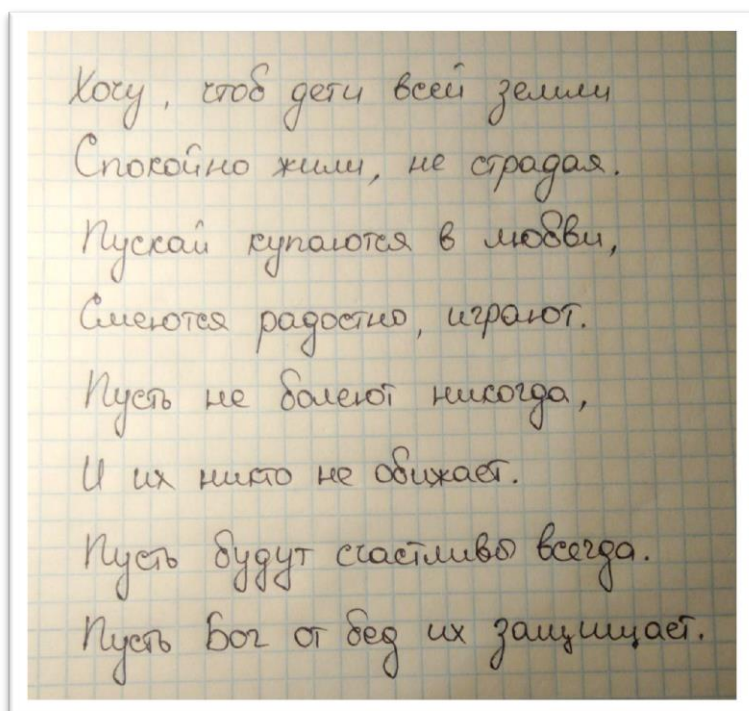 Хочу, чтоб дети всей земли
Спокойно жили, не страдая.
Пускай купаются в любви,
Смеются радостно, играют.
Пусть не болеют никогда,
И их никто не обижает.
Пусть будут счастливы всегда.
Пусть Бог от бед их защищает.